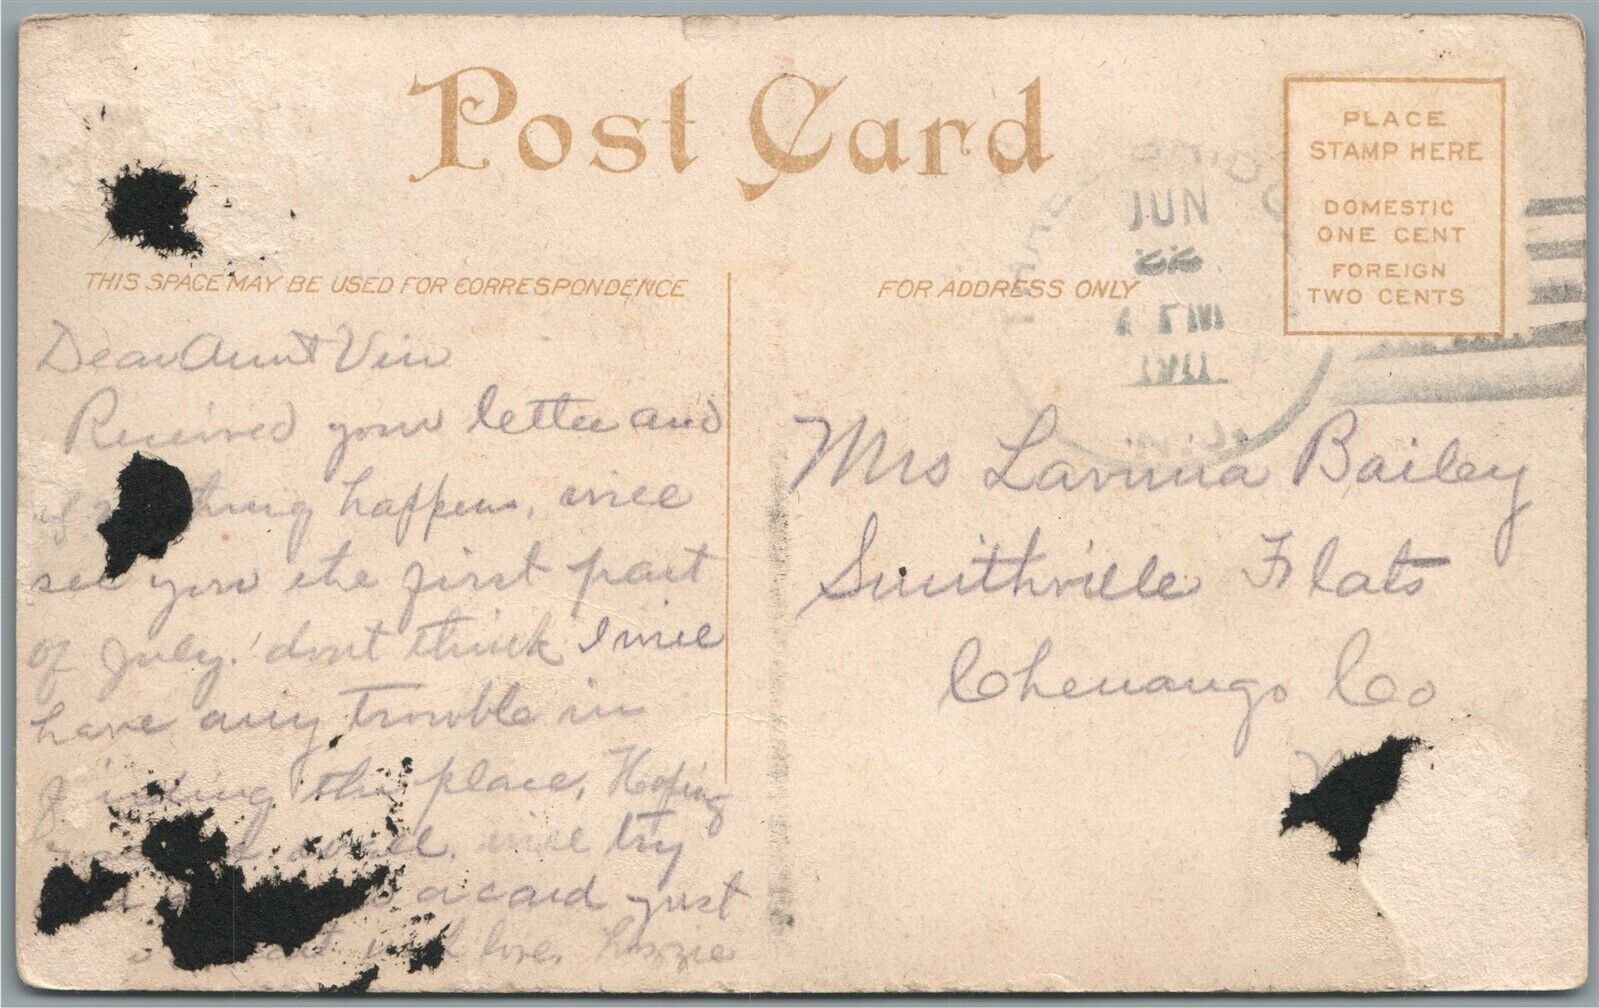 Post Card
PLACE
STAMP HERE
DOMESTIC
ONE CENT
FOREIGN
TWO CENTS
JUN
22
1911
THIS SPACE MAY BE USED FOR CORRESPONDENCE
FOR ADDRESS ONLY
Dear Aunt Vin
Received your letter and
if thing happens, will
see you the first part
of July. dont think I will
have any trouble in
finding the place. Hoping
well. will try
a card just
with love. Lizzie
Mrs Lavinia Bailey
Smithville Flats
Chenango Co